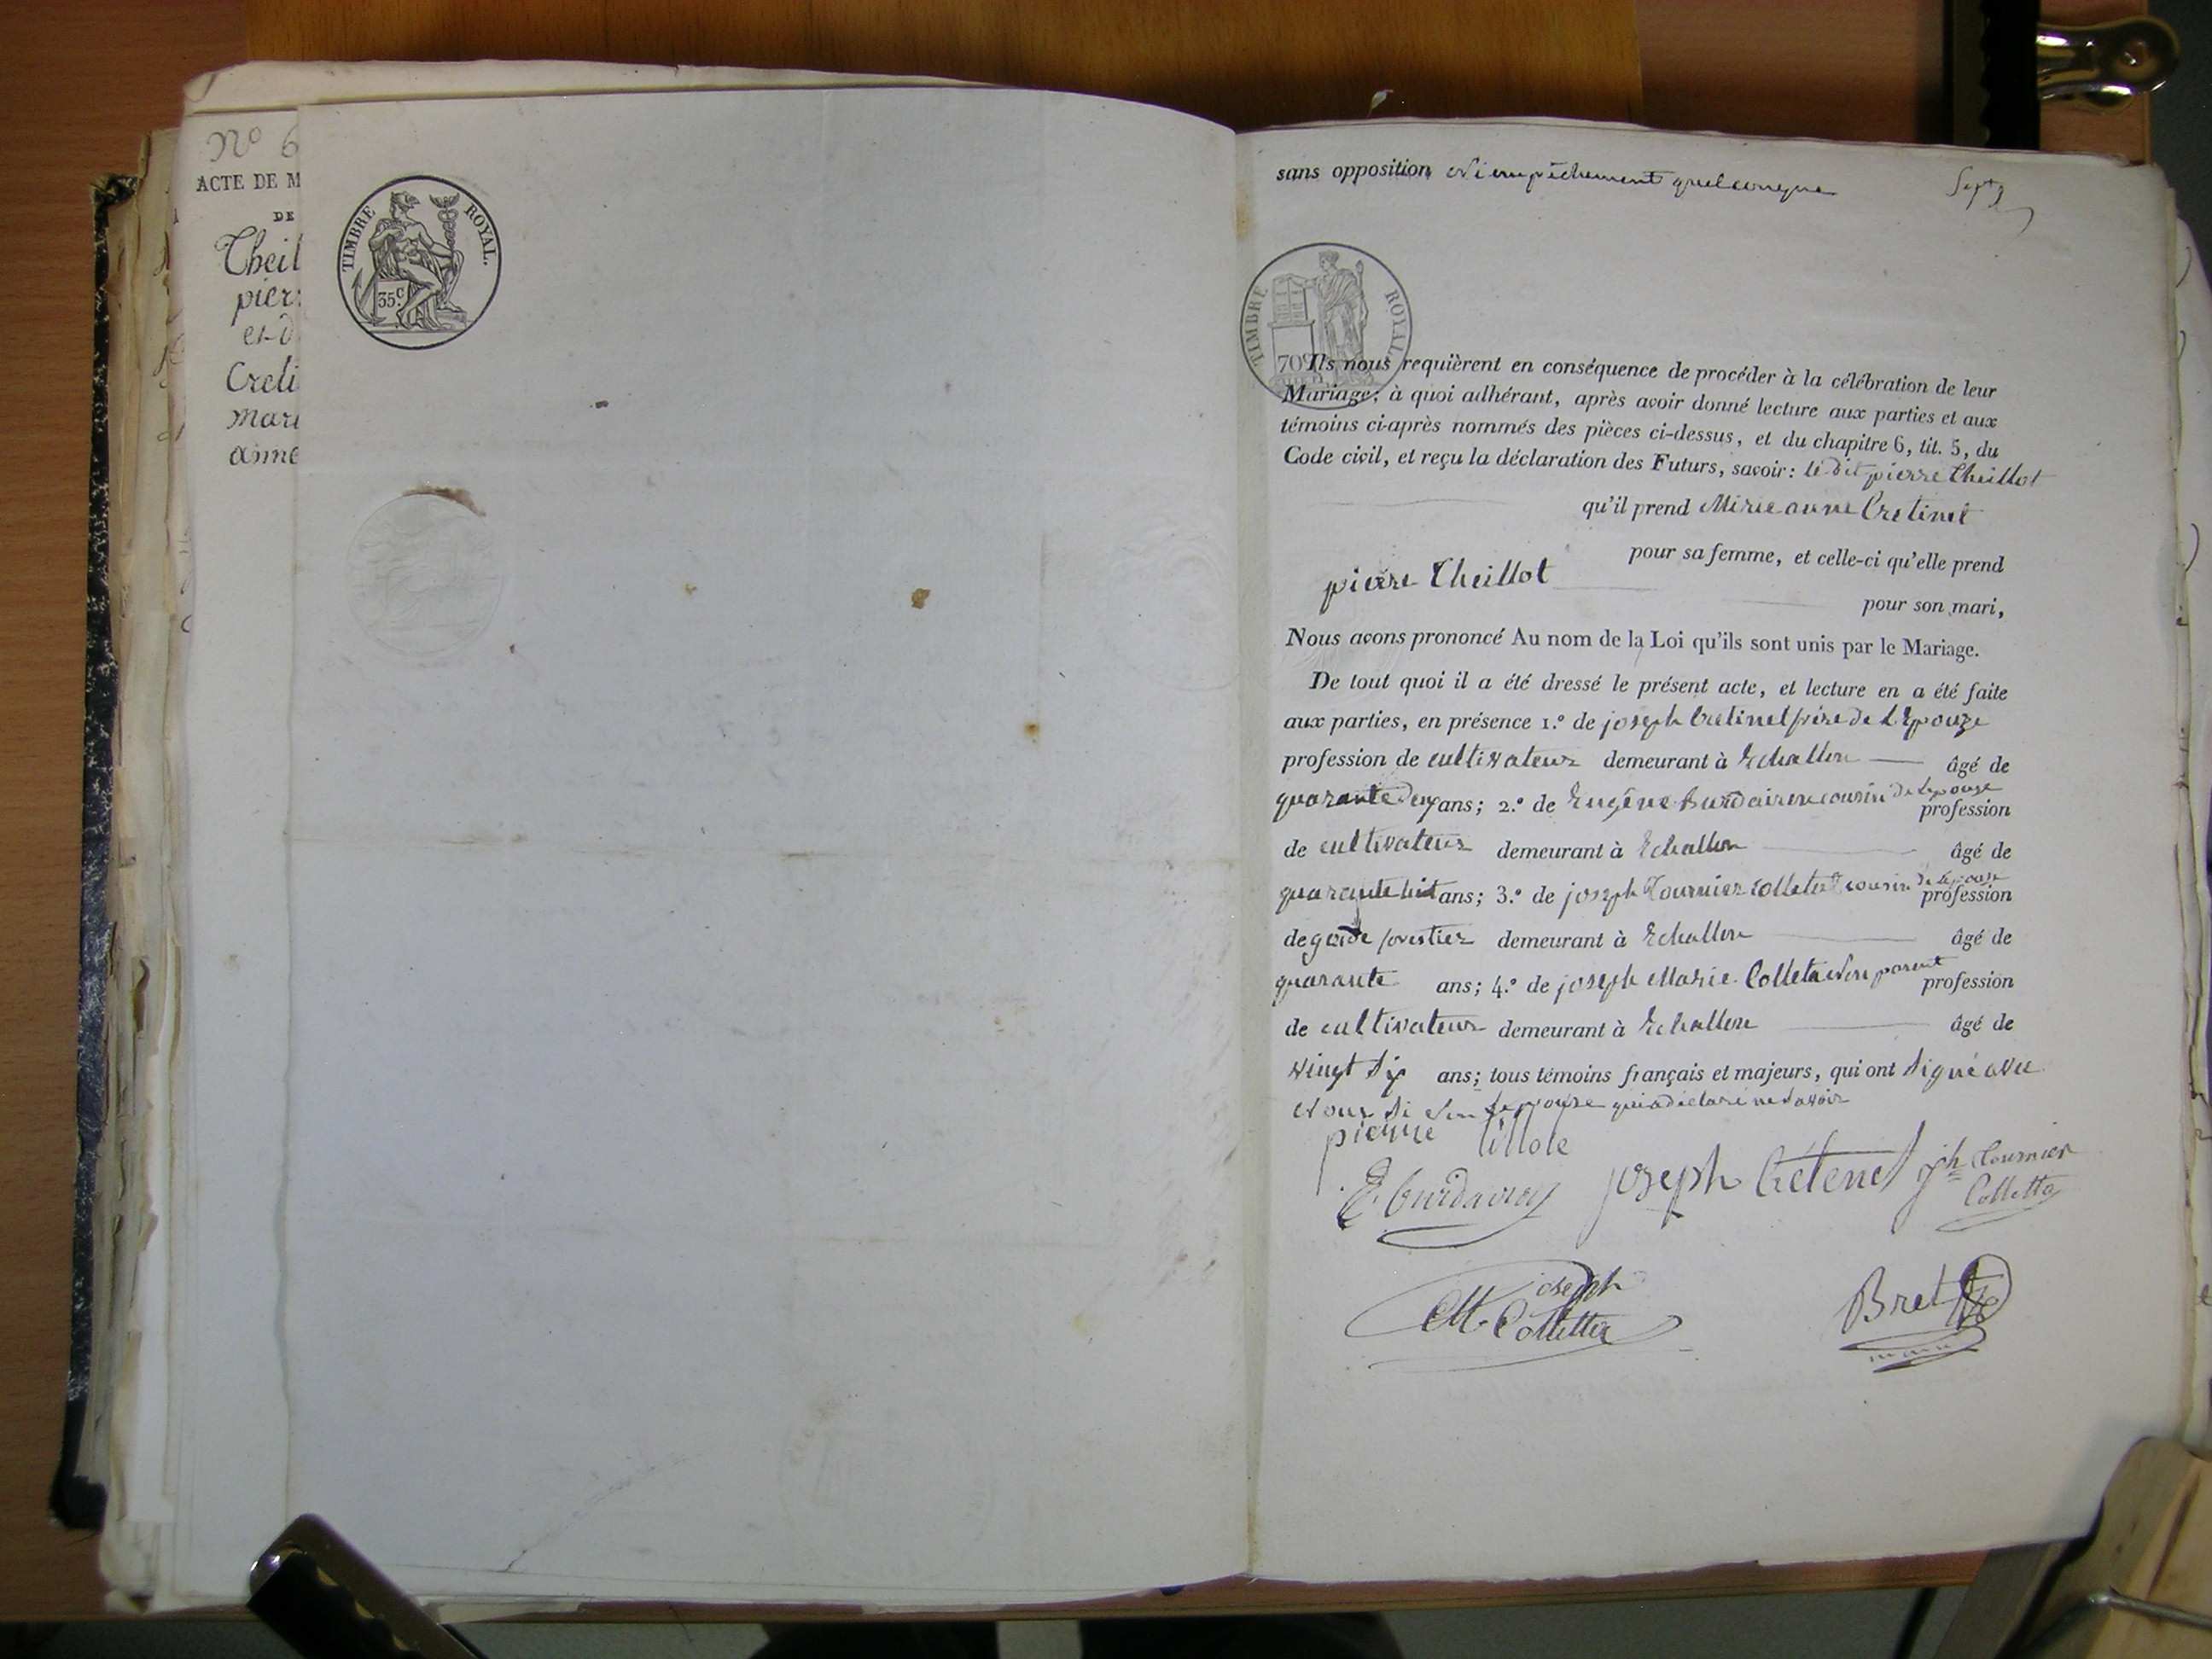 No 6
ACTE DE M
DE
Theil
pier
et d
Creti
Mari
anne
TIMBRE ROYAL.
35c.
sans opposition ni empêchement quelconque
Sept
TIMBRE ROYAL.
70c
Ils nous requièrent en conséquence de procéder à la célébration de leur
Mariage; à quoi adhérant, après avoir donné lecture aux parties et aux
témoins ci-après nommés des pièces ci-dessus, et du chapitre 6, tit. 5, du
Code civil, et reçu la déclaration des Futurs, savoir: le dit pierre Theillot
qu'il prend Marie anne Cretinet
pour sa femme, et celle-ci qu'elle prend
pierre Theillot
pour son mari,
Nous avons prononcé Au nom de la Loi qu'ils sont unis par le Mariage.
De tout quoi il a été dressé le présent acte, et lecture en a été faite
aux parties, en présence 1.º de joseph Cretinet frère de L'Epouze
profession de cultivateur demeurant à Echallon âgé de
quarante deux ans; 2.º de Eugène Burdairon cousin de Lepouse profession
de cultivateur demeurant à Echallon âgé de
quarante huit ans; 3.º de joseph Tournier Colletta cousin de Lepouse profession
de garde forestier demeurant à Echallon âgé de
quarante ans; 4.º de joseph Marie Colleta non parent profession
de cultivateur demeurant à Echallon âgé de
vingt six ans; tous témoins français et majeurs, qui ont Signé avec
Nous Si non Lepouse qui a déclaré ne Savoir
pierre tillole
E. Burdairon joseph Crétenet jph Tournier
Colletta
joseph
M. Colletta
Bret